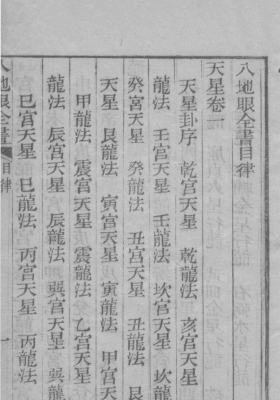 八地眼全書目律
天星卷一
天星卦序 乾宮天星 乾龍法 亥宮天
龍法 壬宮天星 壬龍法 坎宮天星 坎龍
癸宮天星 癸龍法 丑宮天星 丑龍法 艮
天星 艮龍法 寅宮天星 寅龍法 甲宮天
甲龍法 震宮天星 震龍法 乙宮天星
龍法 辰宮天星 辰龍法 巽宮天星 巽龍
巳宮天星 巳龍法 丙宮天星 丙龍法
八地眼全書 目律 一